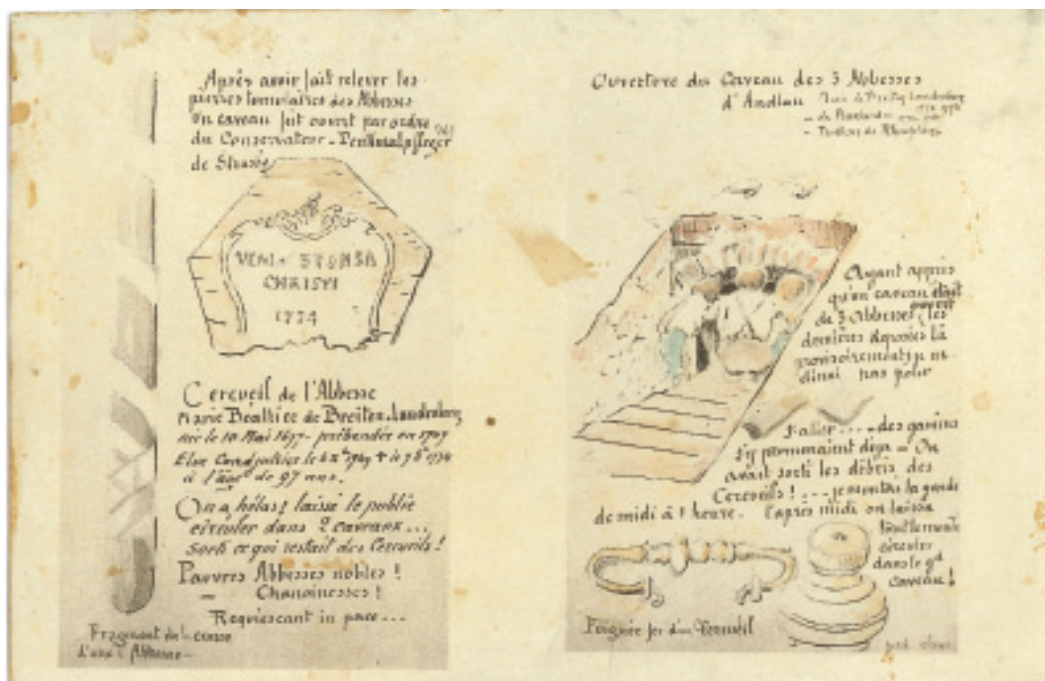 Après avoir fait relever les
pierres tumulaires des Abbesses
un caveau fut ouvert par ordre
du Conservateur - Denkmalpfleger
de Strasbg
VENI SPONSA
CHRISTI
1774
Cercueil de l'Abbesse
Marie Béatrice de Breiten-Landenberg
née le 10 Mai 1677 - prébendée en 1707
Elue Coadjutrice le
à l'âge de 97 ans.
On a hélas! laissé le public
circuler dans 2 caveaux...
Sorti ce qui restait des Cercueils!
Pauvres Abbesses nobles!
- Chanoinesses!
Requiescant in pace...
Fragment de la crosse
d'une Abbesse -
Ouverture du Caveau des 3 Abbesses
d'Andlau
Ayant appris
qu'un caveau était
ouvert
de 3 Abbesses, les
dernières déposées là
provisoirement, je ne
dînai pas pour
y aller.... des gamins
s'y promenaient déjà - On
avait sorti les débris des
Cercueils! ... je montai la garde
de midi à 1 heure. l'après midi on laissa
circuler
dans le gd
caveau!
Poignée fer d'un Cercueil